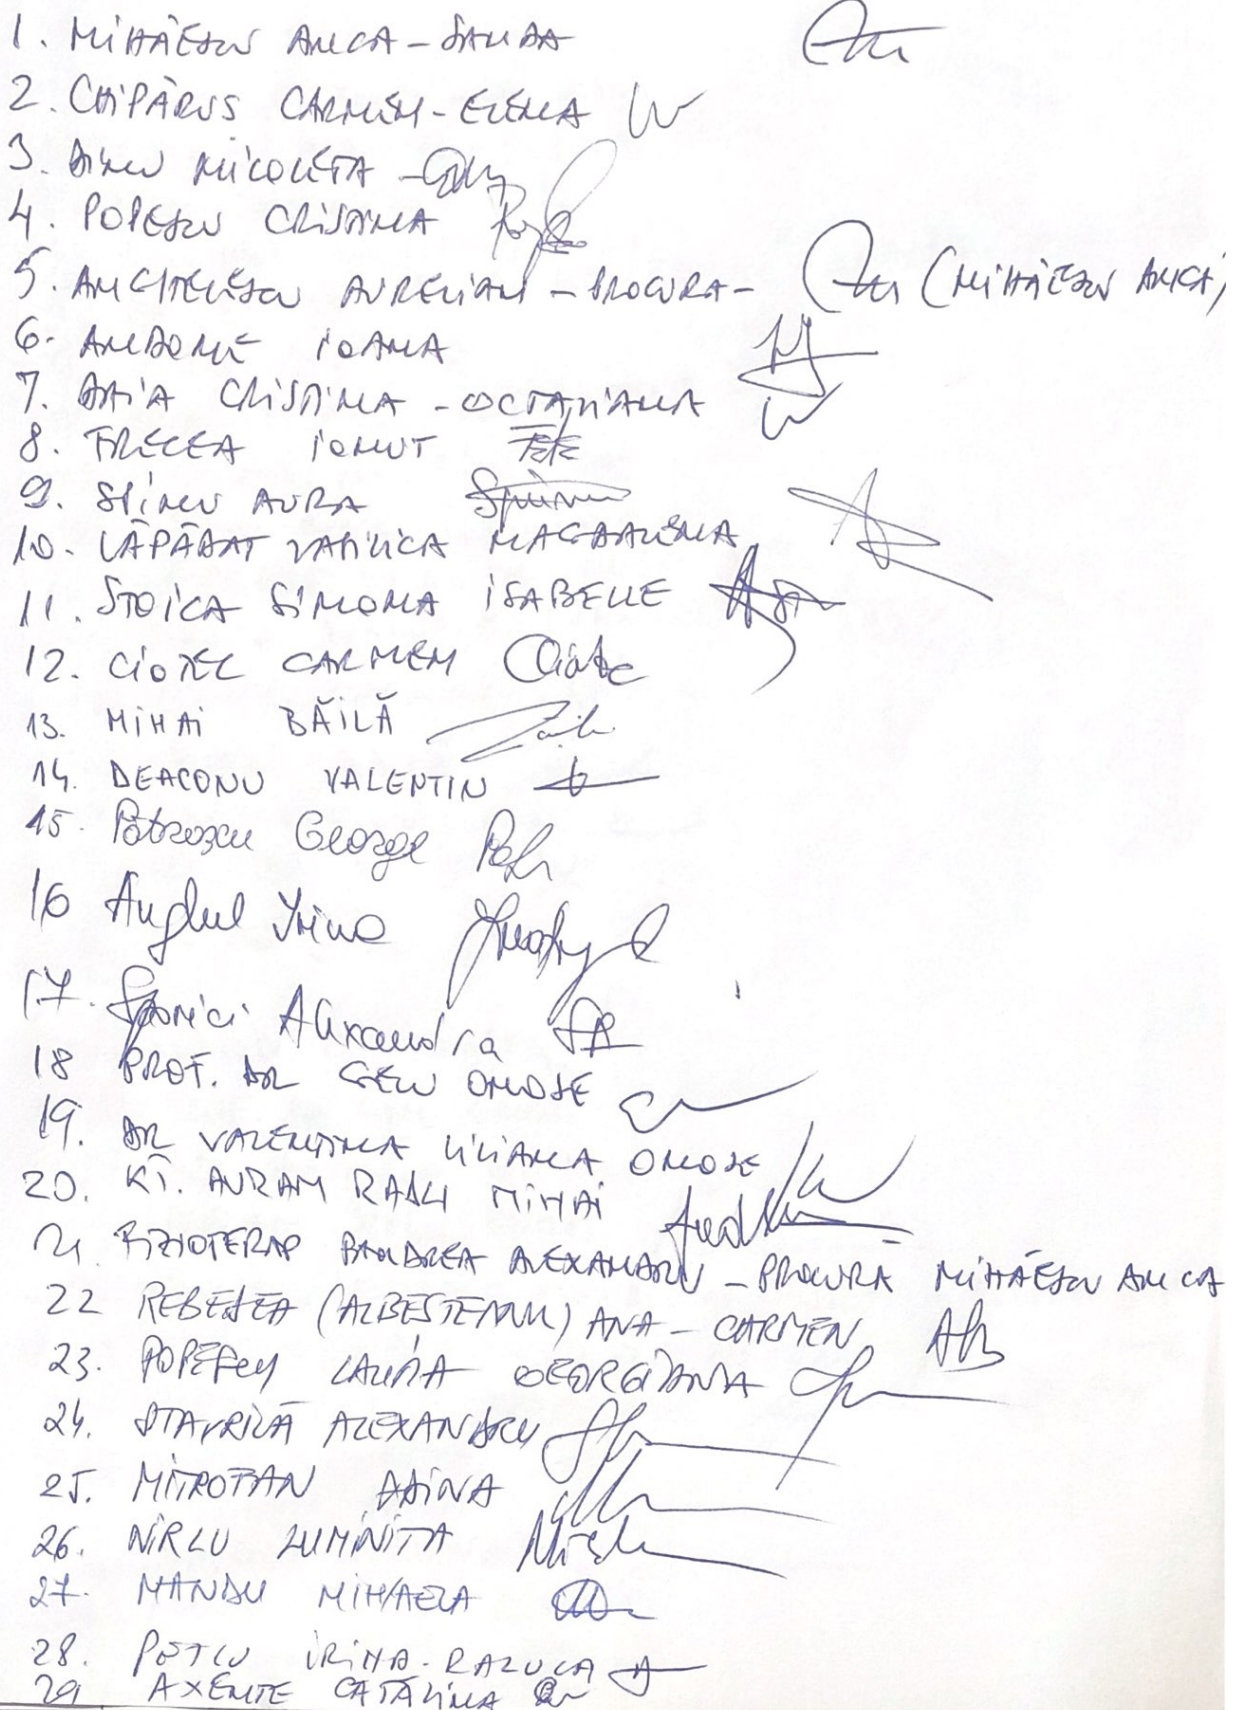 1. MIHĂESCU ANCA-SANDA
2. CHIPĂRUS CARMEN-ELENA
3. DINU NICOLETA -
4. POPESCU CRISTINA
5. ANGHELESCU AURELIAN - PROCURA - (MIHĂESCU ANCA)
6. ANDONE IOANA
7. DAIA CRISTINA - OCTAVIANA
8. FRECEA IONUT
9. SPINU AURA Spinu
10. LĂPĂDAT VASILICA MAGDALENA
11. STOICA SIMONA ISABELLE
12. CIOTEC CARMEN
13. MIHAI BĂILĂ
14. DEACONU VALENTIN
15. George
16 Anghel Irina
17. Alexandra
18 PROF. DR GELU ONOSE
19. DR VALENTINA LILIANA ONOSE
20. KT. AVRAM RADU MIHAI
21 FIZIOTERAP ALEXANDRU - PROCURĂ MIHĂESCU ANCA
22 (ALBESTEANU) ANA - CARMEN
23. POPESCU LAURA GEORGIANA
24. STAVRILĂ ALEXANDRU
25. MITROFAN ADINA
26. LUMINITA
27. MANDU MIHAELA
28. PETCU IRINA-RALUCA
29 AXENTE CATĂLINA